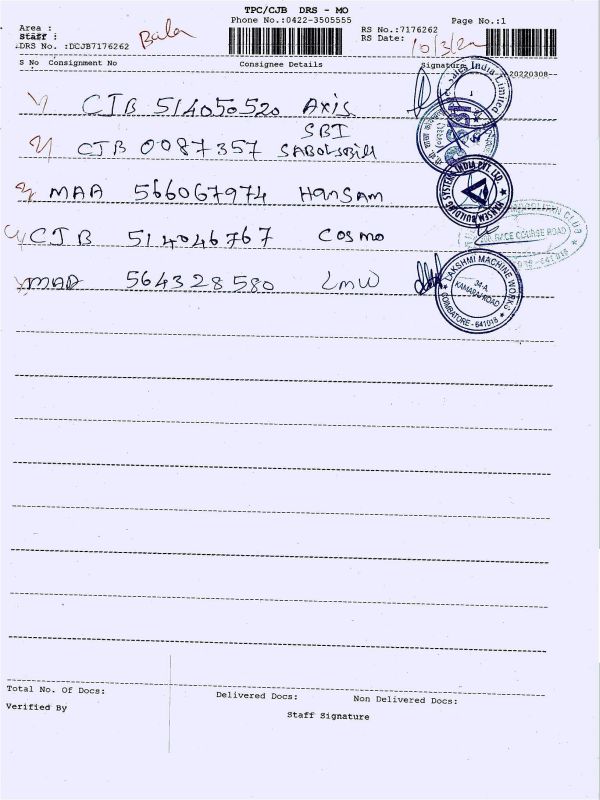 TPC/CJB DRS - MO
Phone No.:0422-3505555 Page No.:1
Area :
Staff : Bala
RS No.:7176262
RS Date: 10/3/22
DRS No. :DCJB7176262
20220308
S No Consignment No Consignee Details Signature
CJB 514050520 Axis
SBI
CJB 0087357
MAA 566067974 Hansam
CJB 514046767 Cosmo
MAA 564328580 LMW
India Limited
HANSEM BUILDING SYSTEMS INDIA PVT LTD
COSMOPOLITAN CLUB
RACE COURSE ROAD
641 018
LAKSHMI MACHINE WORKS
34-A,
KAMARAJ ROAD
COIMBATORE - 641018
Total No. Of Docs: Delivered Docs: Non Delivered Docs:
Verified By
Staff Signature